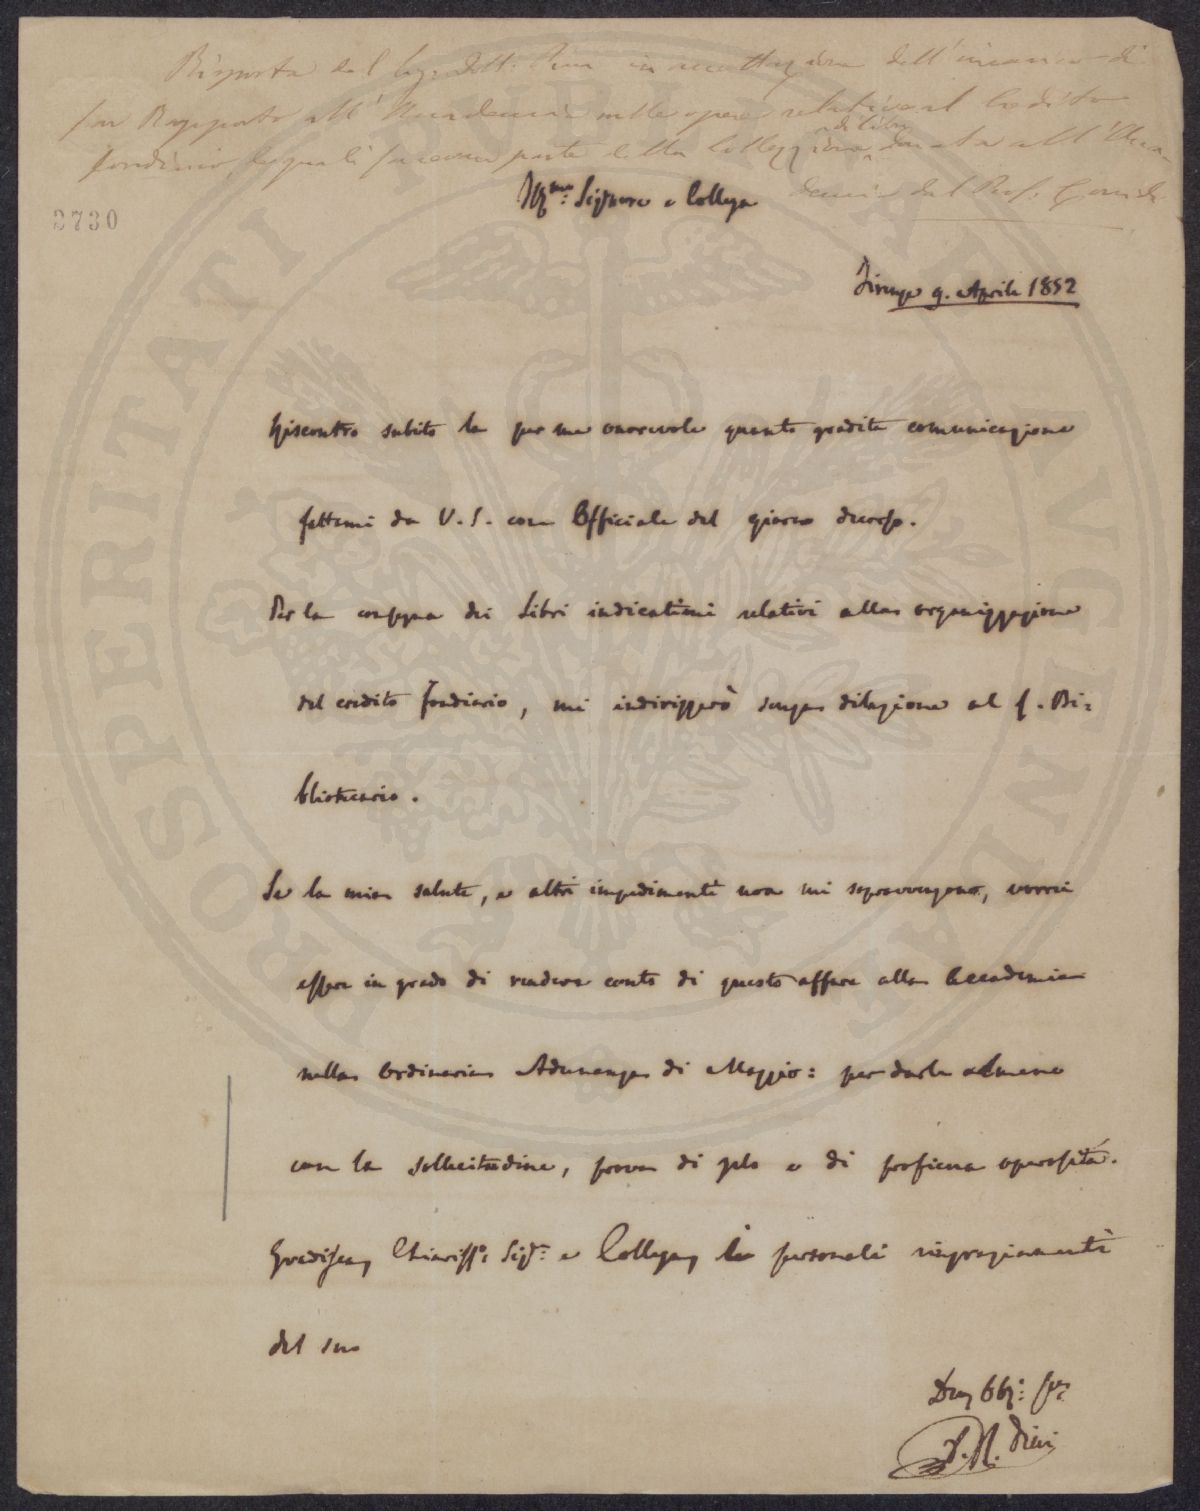 Risposta del Sig. Dott. Pieri in accettazione dell'incarico di
far Rapporto all'Accademia sulle opere relative al Credito
fondiario, le quali facevano parte della Collezione di libri donata all'Acca-
demia dal Prof. Corridi
Ill.mo Signore e Collega
2730
Firenze 9. Aprile 1852
Riscontro subito la per me onorevole quanto gradita comunicazione
fattami da V. S. con Officiale del giorno decorso.
Per la consegna dei Libri indicatimi relativi alla organizzazione
del credito fondiario, mi indirizzerò senza dilazione al S. Bi-
bliotecario.
Se la mia salute, e altri impedimenti non mi sopravvengono, vorrei
essere in grado di rendere conto di questo affare alla Accademia
nella Ordinaria Adunanza di Maggio: per darle almeno
con la sollecitudine, prova di zelo e di proficua operosità.
Gradisca, Chiariss. Sig. e Collega, i personali ringraziamenti
del suo
Dev. Obb.
Pieri
PROSPERITATI PUBLICAE AUGENDAE